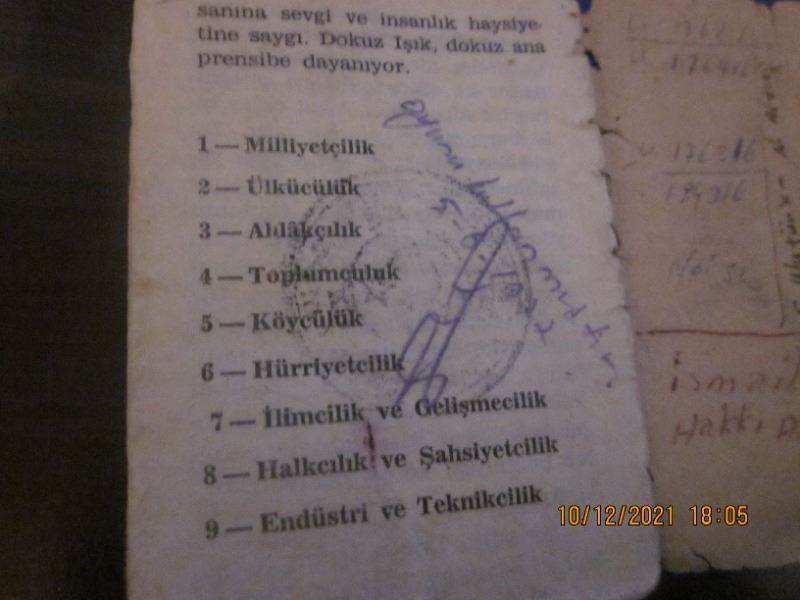 sanına sevgi ve insanlık haysiye-
tine saygı. Dokuz Işık, dokuz ana
prensibe dayanıyor.
1 — Milliyetçilik
2 — Ülkücülük
3 — Ahlâkçılık
4 — Toplumculuk
5 — Köycülük
6 — Hürriyetcilik
7 — İlimcilik ve Gelişmecilik
8 — Halkcılık ve Şahsiyetcilik
9 — Endüstri ve Teknikcilik
oyunu kullanmıştır
176216
ismail
Hakkı
10/12/2021 18:05